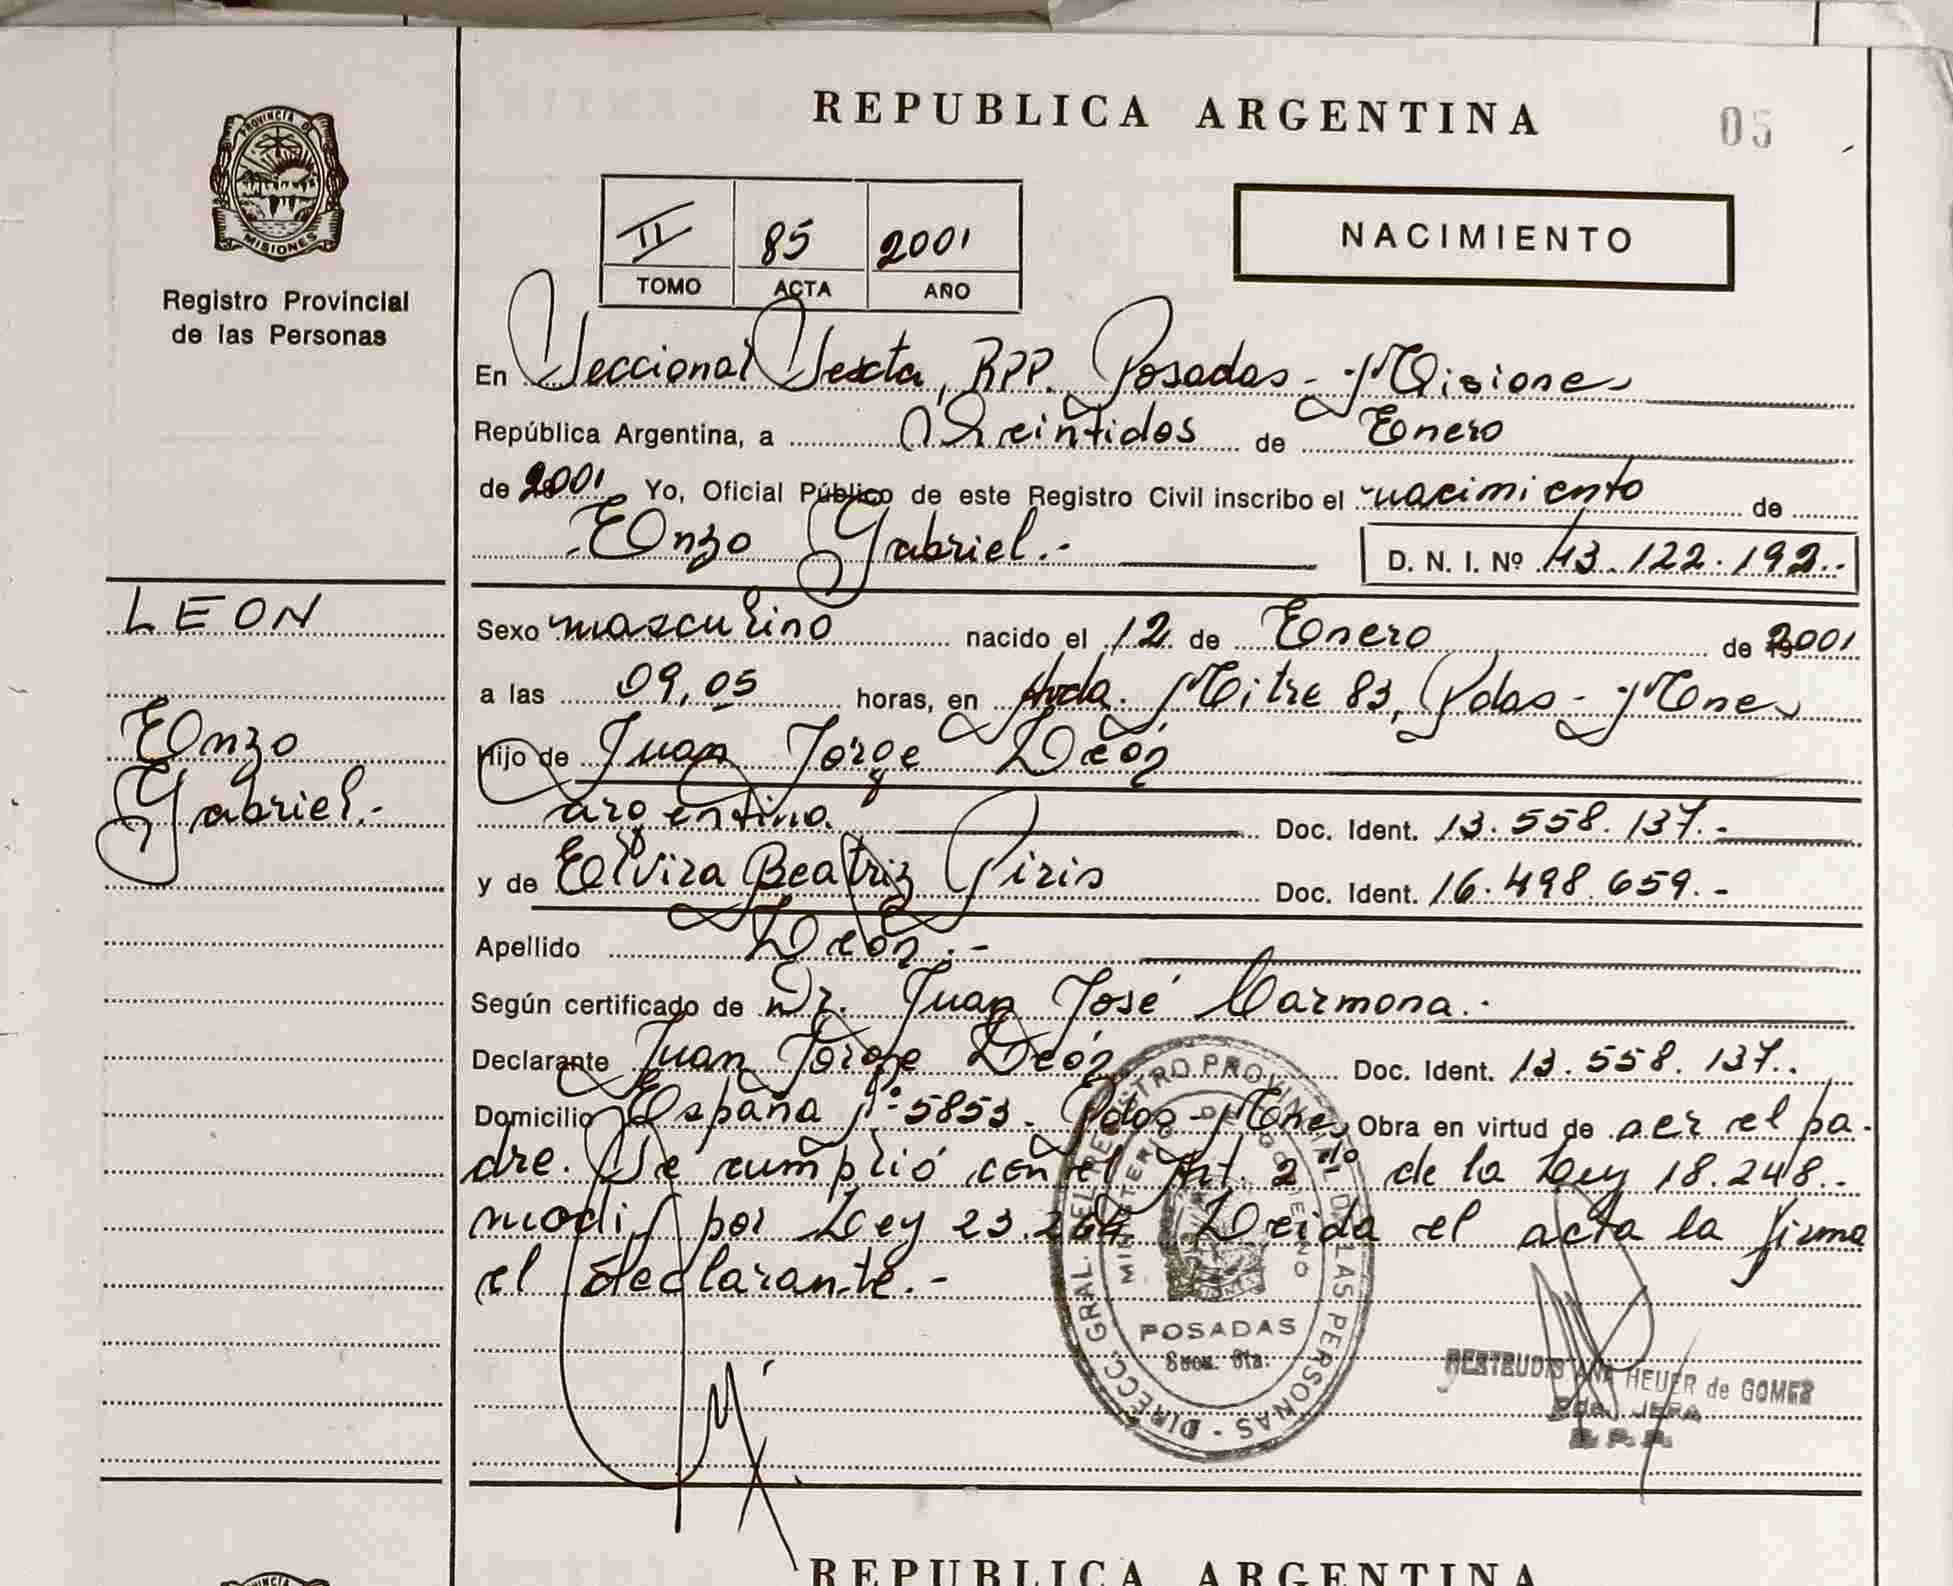 REPUBLICA ARGENTINA
05
PROVINCIA DE
MISIONES
Registro Provincial
de las Personas
II 85 2001
TOMO ACTA AÑO
NACIMIENTO
En Seccional Sexta, RPP. Posadas - Misiones
República Argentina, a Veintidos de Enero
de 2001 Yo, Oficial Público de este Registro Civil inscribo el nacimiento de
Enzo Gabriel.-
D. N. I. Nº 43.122.192.-
LEON
Enzo
Gabriel.-
Sexo masculino nacido el 12 de Enero de 2001
a las 09,05 horas, en Avda. Mitre 83, Pdas - Mnes
Hijo de Juan Jorge León
argentino. Doc. Ident. 13.558.137.-
y de Elvira Beatriz Piris Doc. Ident. 16.498.659.-
Apellido León.-
Según certificado de Dr. Juan José Carmona.-
Declarante Juan Jorge León Doc. Ident. 13.558.137.
Domicilio España Nº 5853. Pdas - Mnes Obra en virtud de ser el pa-
dre. Se cumplió con el Art. 2do de la Ley 18.248.-
modif por Ley 23.264 Leída el acta la firma
el declarante.-
DIRECC. GRAL. DEL REGISTRO PROVINCIAL DE LAS PERSONAS
MINISTERIO DE GOBIERNO
POSADAS
Secc. 6ta.
GERTRUDIS ANA HEUER de GOMEZ
JEFA
R.P.P.
REPUBLICA ARGENTINA
PROVINCIA